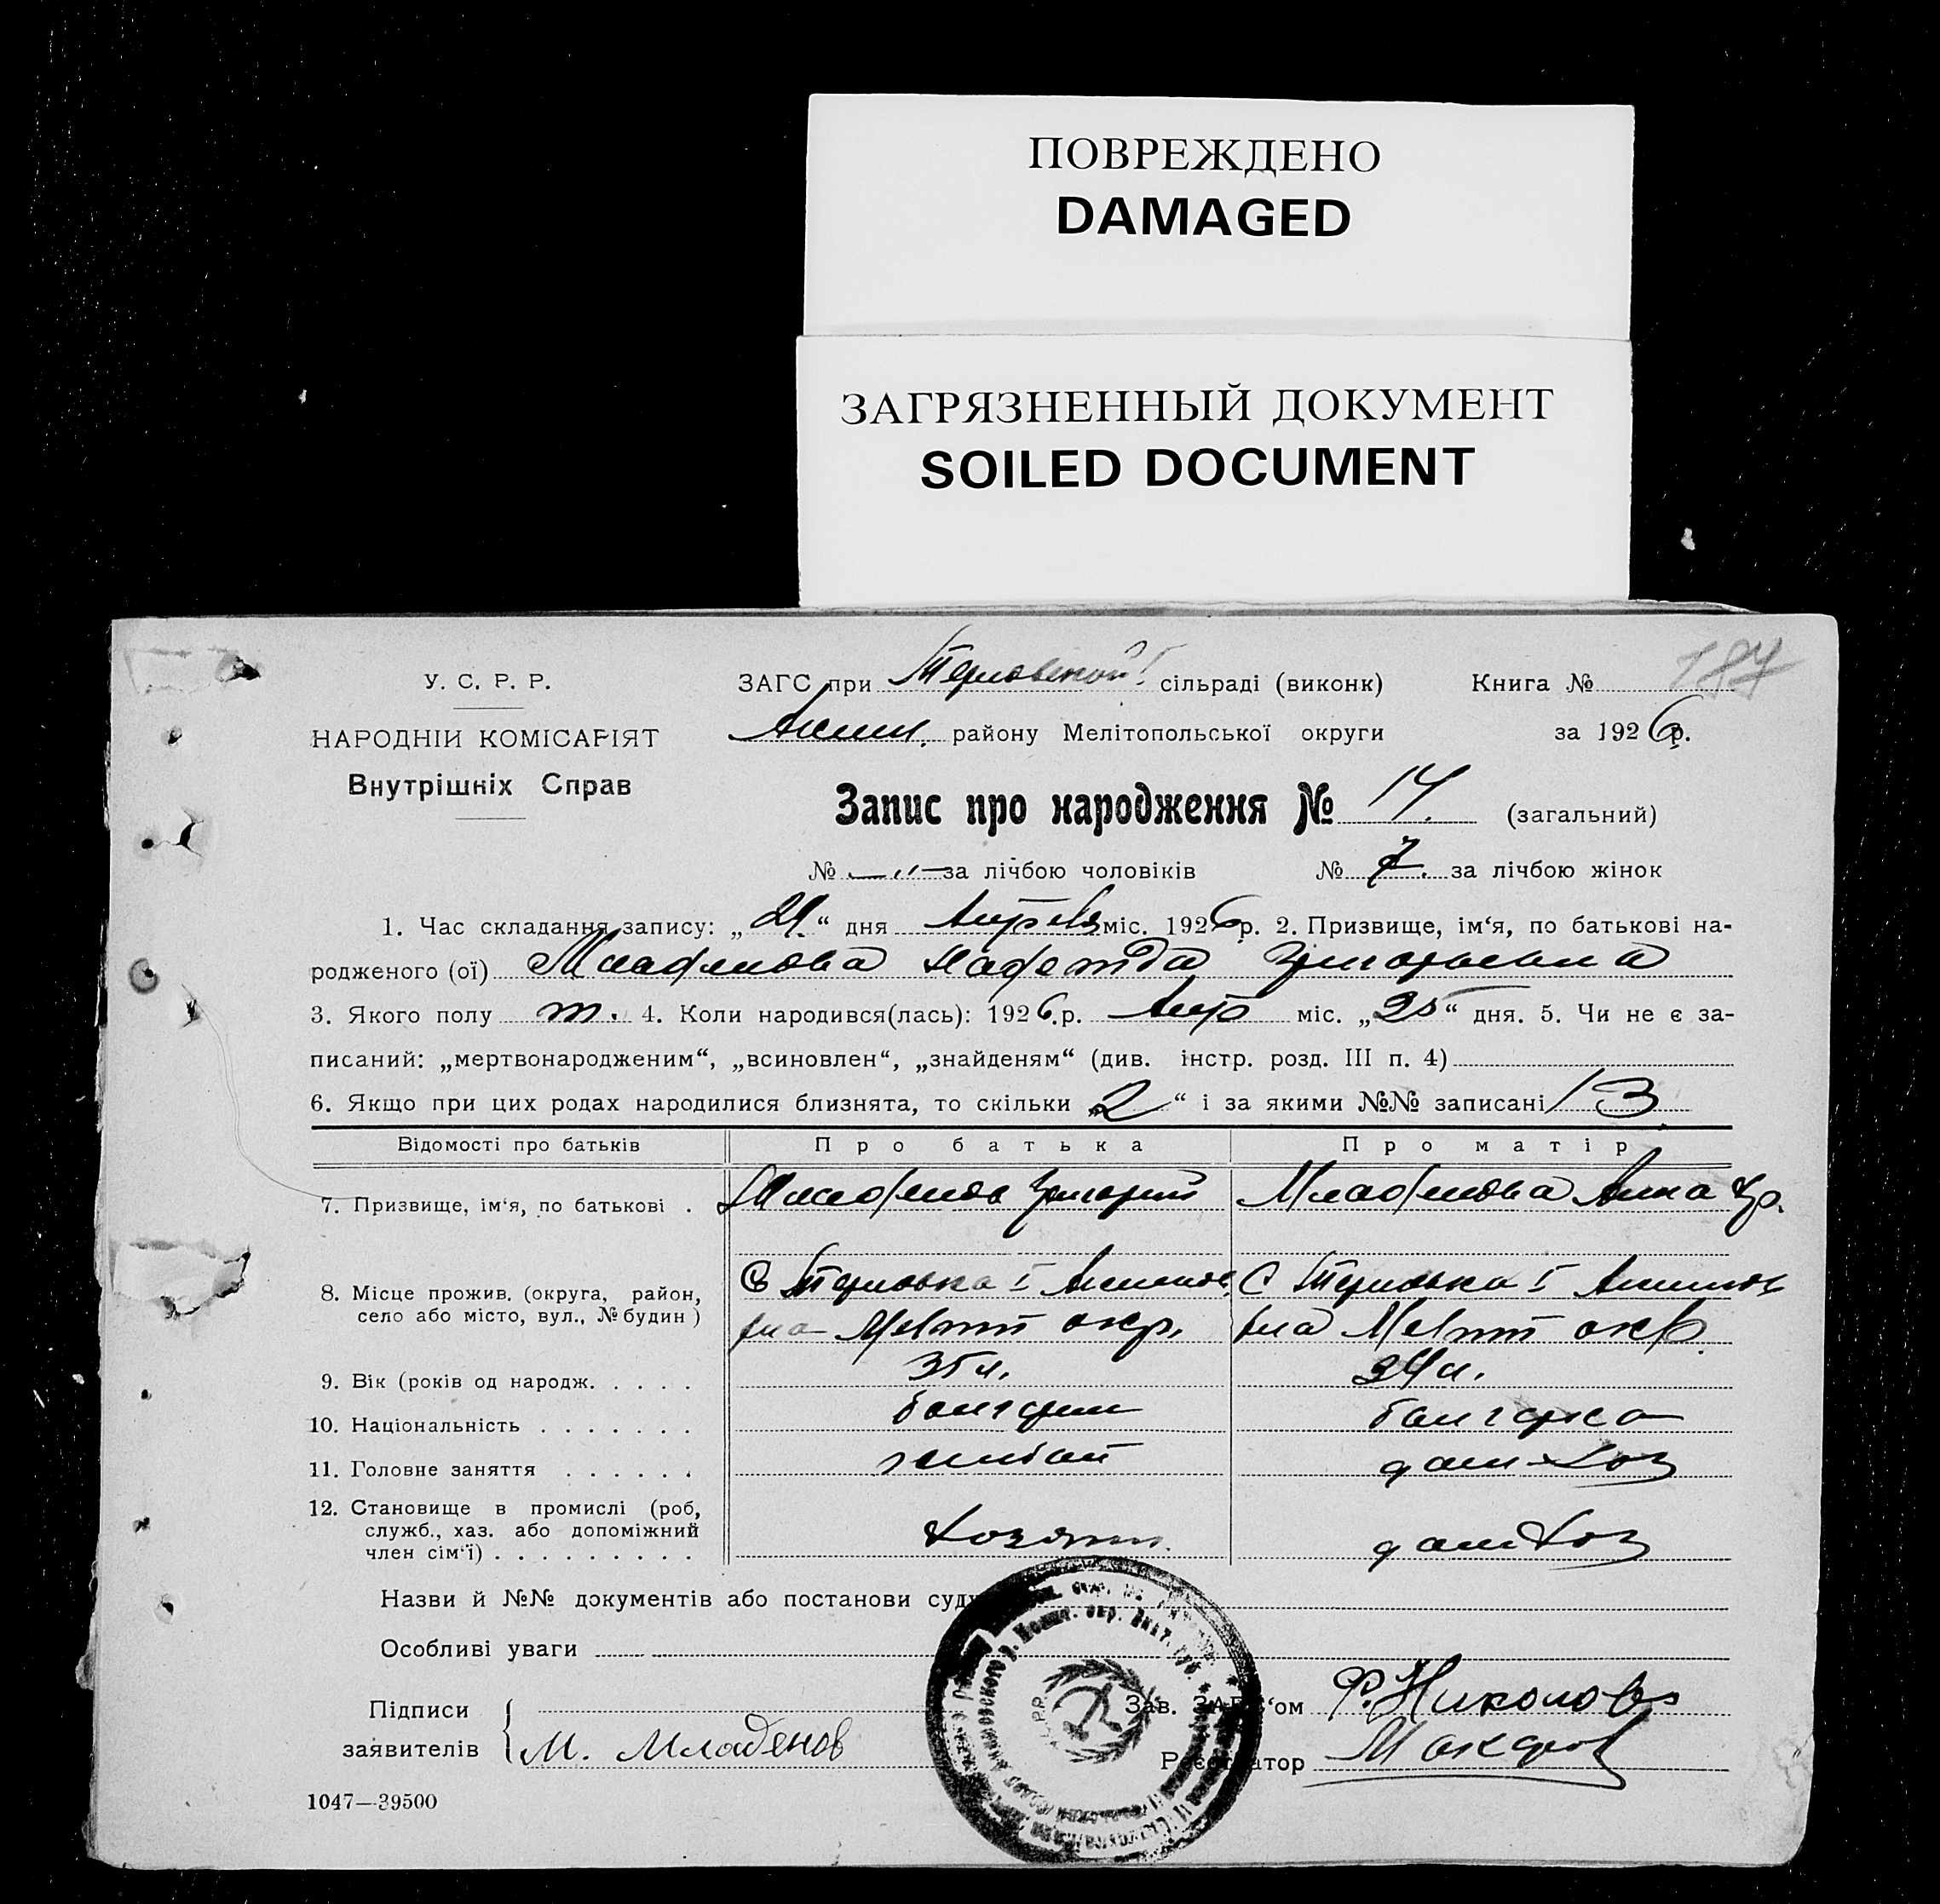 ПОВРЕЖДЕНО
DAMAGED
ЗАГРЯЗНЕННЫЙ ДОКУМЕНТ
SOILED DOCUMENT
187
У. С. Р. Р.
НАРОДНІЙ КОМІСАРІЯТ
Внутрішніх Справ
ЗАГС при Терновской I сільраді (виконк) Книга №
Аким. району Мелітопольської округи за 1926 р.
Запис про народження № 14. (загальний)
№ —„— за лічбою чоловіків № 7. за лічбою жінок
1. Час складання запису: „ “ дня Апреля міс. 1926 р. 2. Призвище, ім‘я, по батькові на-
родженого (ої) Младенова Григорьевна
3. Якого полу ж. 4. Коли народився(лась): 1926 р. Апр міс. „25“ дня. 5. Чи не є за-
писаний: „мертвонародженим“, „всиновлен“, „знайденям“ (див. інстр. розд. III п. 4)
6. Якщо при цих родах народилися близнята, то скільки „2“ і за якими №№ записані 13
Відомості про батьків Про батька Про матір
7. Призвище, ім‘я, по батькові . Младенов Григорий Младенова Анна
8. Місце прожив. (округа, район,
село або місто, вул., № будин) С Терновка I Акимов С Терновка I Акимов
она Мелит окр. она Мелит окр
9. Вік (років од народж. . . . . 35 л. 34 л.
10. Національність . . . . . . . болгарин болгарка
11. Головне заняття . . . . . . хлебоп дом хоз
12. Становище в промислі (роб,
служб., хаз. або допоміжний
член сім‘ї) . . . . . . . . . хозяин. дом хоз
Назви й №№ документів або постанови суду
Особливі уваги
Підписи
заявителів М. Младенов
Зав. ЗАГС‘ом Ф. Николов
Реєстратор Макаров
1047—39500